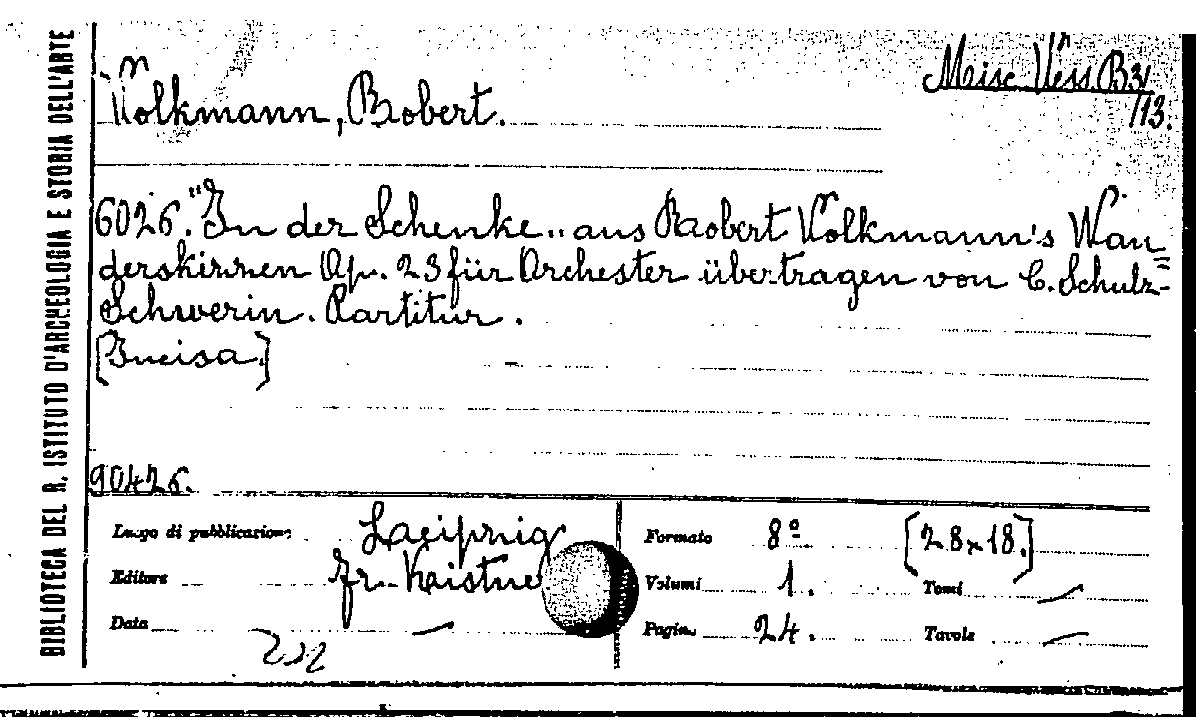 BIBLIOTECA DEL R. ISTITUTO D'ARCHEOLOGIA E STORIA DELL'ARTE
Misc. Vess. B 31
/13.
Volkmann, Robert.
6026. "In der Schenke" aus Robert Volkmann's Wan
derskizzen Op. 23 für Orchester übertragen von C. Schulz-
Schwerin. Partitur.
[Incisa]
90426.
Luogo di pubblicazione Laeipzig
Editore Fr. Kistne
Data —
232
Formato 8º [28x18.]
Volumi 1. Tomi —
Pagine 24. Tavole —